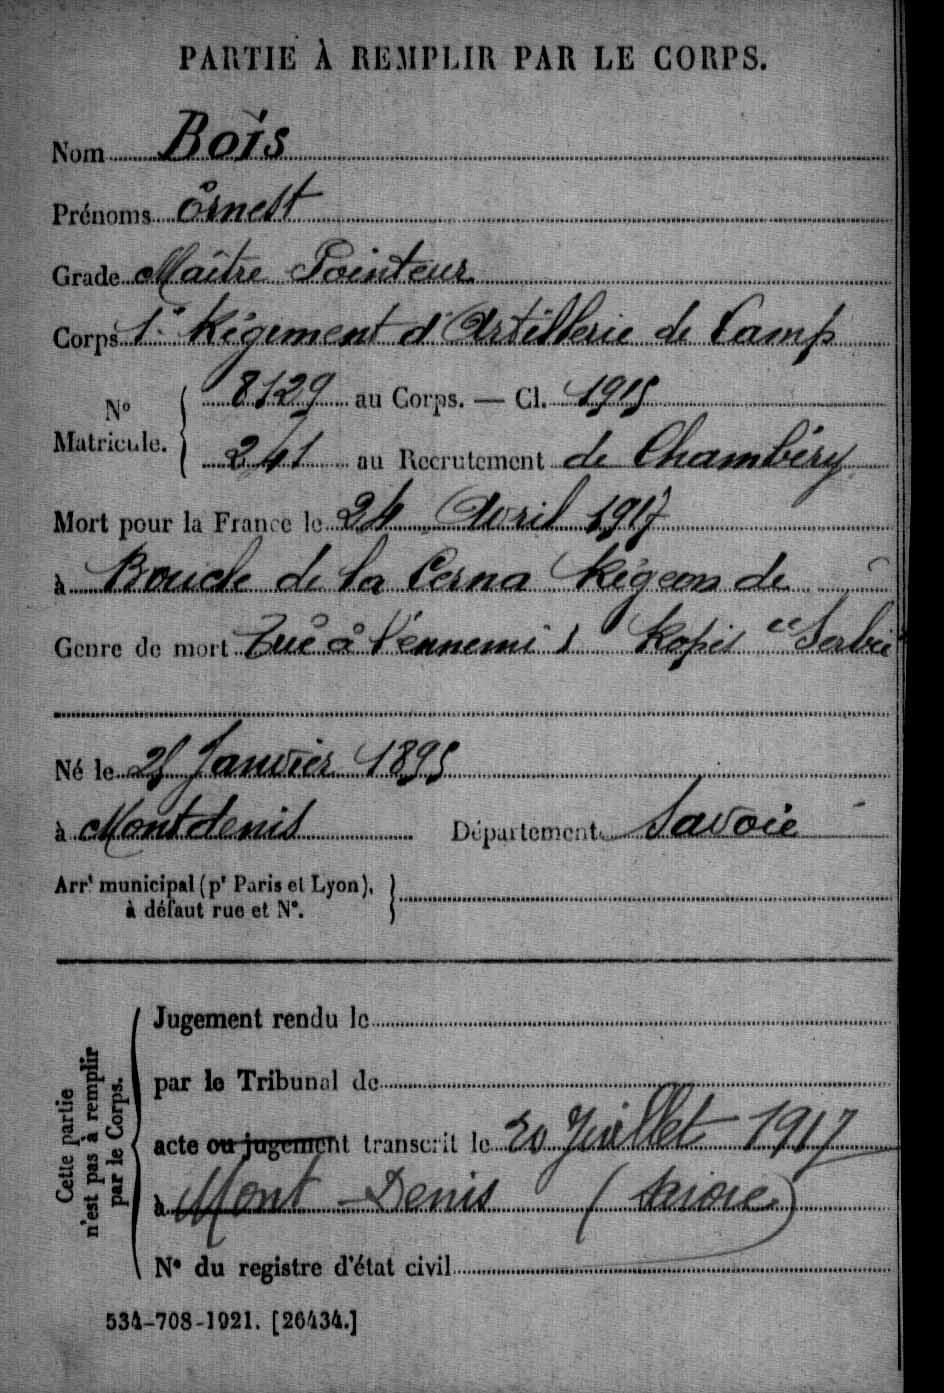 PARTIE À REMPLIR PAR LE CORPS.
Nom Bois
Prénoms Ernest
Grade Maître Pointeur
Corps 1er Régiment d'Artillerie de Camp
No
Matricule.
8129 au Corps. — Cl. 1915
241 au Recrutement de Chambéry
Mort pour la France le 24 Avril 1917
à Boucle de la Cerna Région de
Genre de mort Tué à l'ennemi Serbie
Né le 25 Janvier 1895
à Montdenis Département Savoie
Arrt municipal (pr Paris et Lyon),
à défaut rue et No.
Cette partie
n'est pas à remplir
par le Corps.
Jugement rendu le
par le Tribunal de
acte ou jugement transcrit le 20 Juillet 1917
à Mont-Denis (Savoie)
No du registre d'état civil
534-708-1921. [26434.]